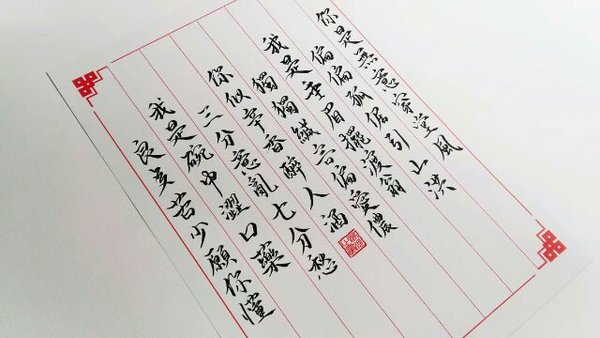 你是無意穿堂風
偏偏孤倨引山洪
我是垂眉擺渡翁
獨獨緘言偏愛儂
你似辛香醉人酒
三分意亂七分愁
我是碗中澀口藥
良多苦少願你懂